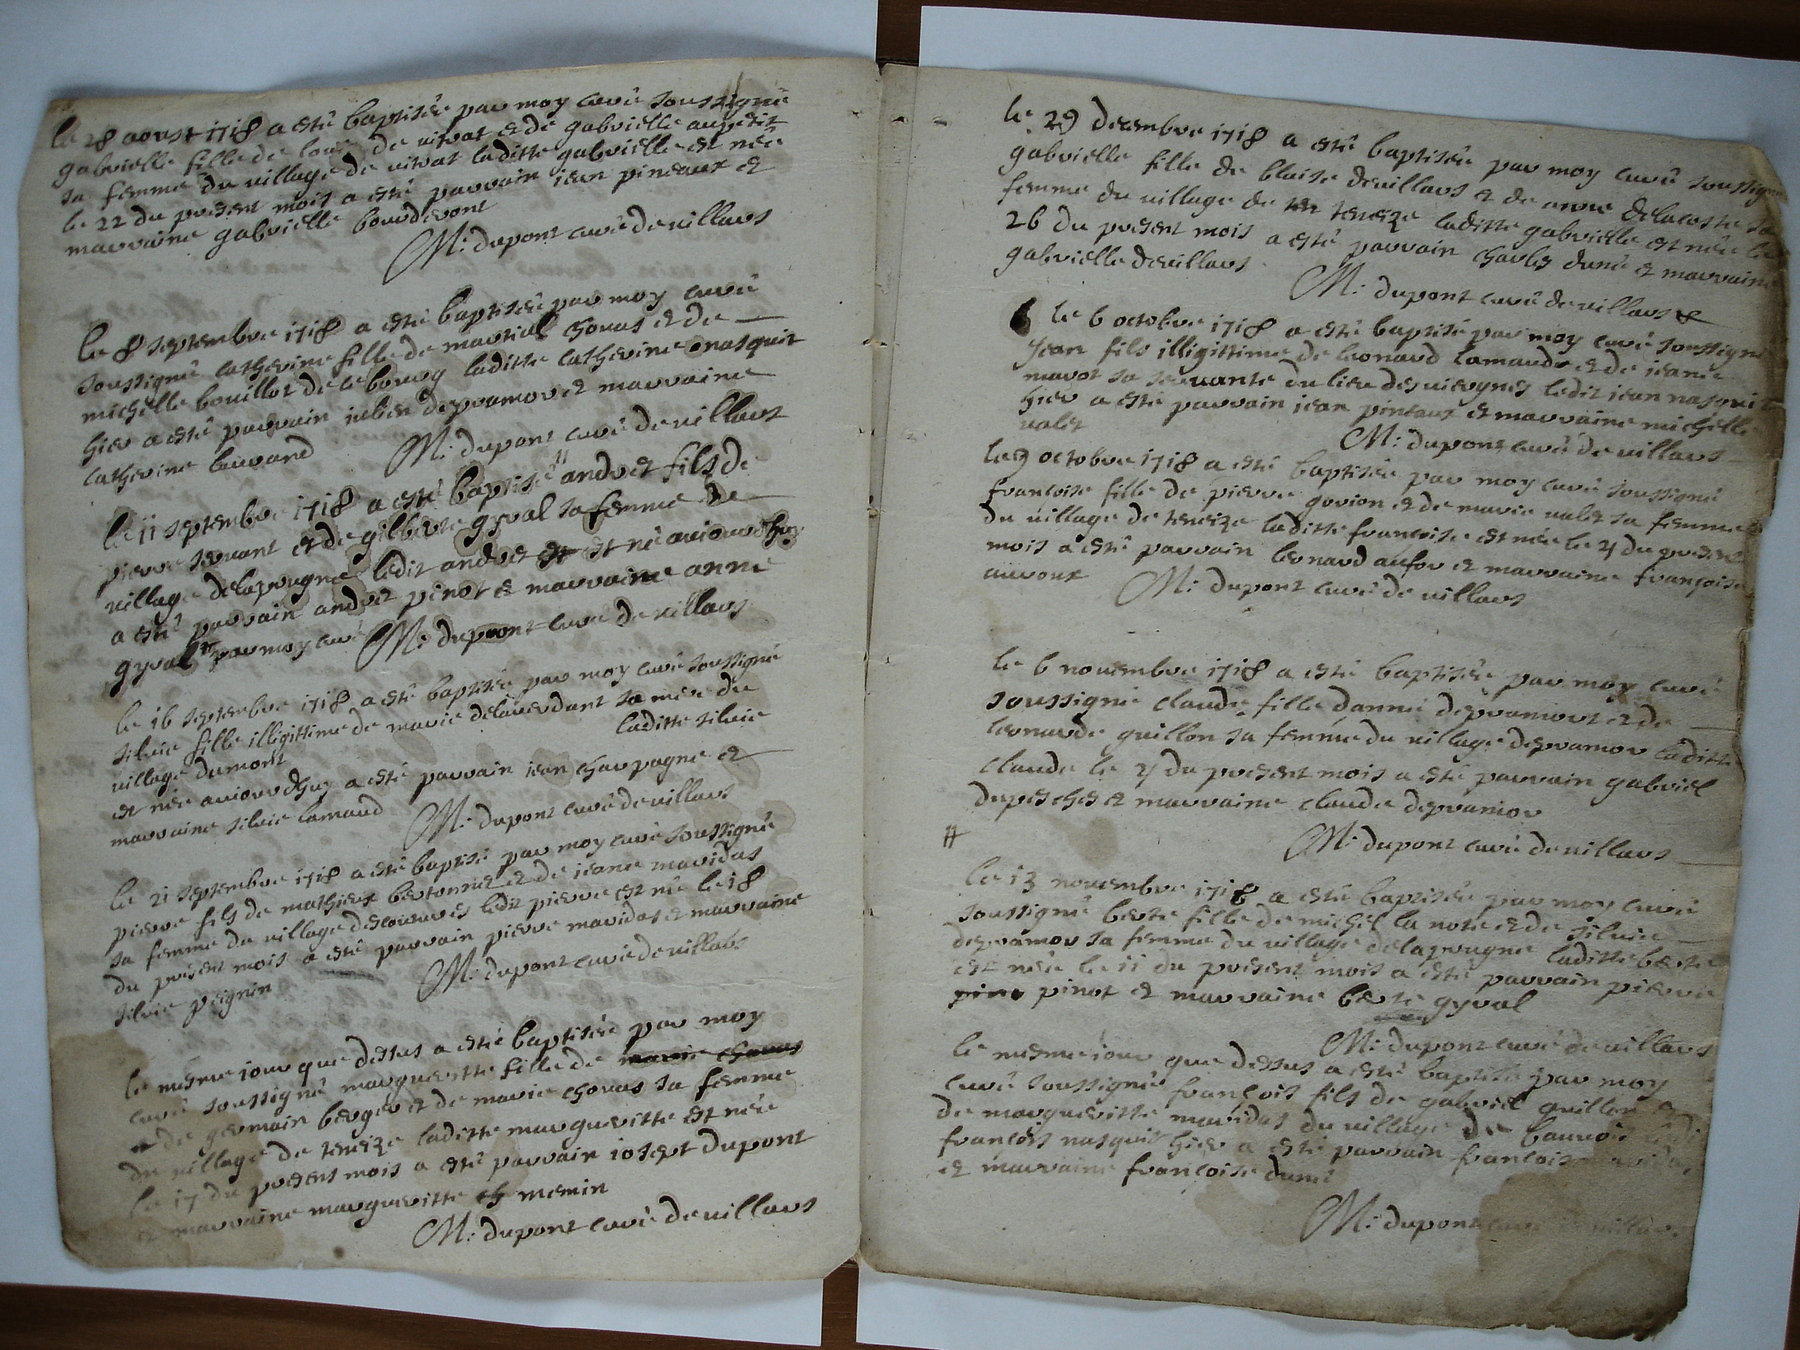 le 28 aoust 1718 a esté baptisée par moy curé soussigné
gabrielle fille de louis de vitrat et de gabrielle aupetit
sa femme du village de vitrat laditte gabrielle est née
le 22 du present mois a esté parrain iean pineaux et
marraine gabrielle bourderont
M: dupont curé de villars
le 8 septembre 1718 a esté baptisée par moy curé
soussigné catherine fille de martial chovas et de
michelle bouillot de ce bourg laditte catherine nasquit
hier a esté parrain iulien depramor et marraine
catherine lavrand
M: dupont curé de villars
le 11 septembre 1718 a esté baptisé andret fils de
pierre servant et de gilberte gyval sa femme de
village delaprugne ledit andret est né auiourdhuy
a esté parrain andret pinot et marraine anne
gyval par moy curé M: dupont curé de villars
le 16 septembre 1718 a esté baptisée par moy curé soussigné
silvie fille illigittime de marie delaverdant sa mere du
village dumont laditte silvie
est née auiourdhuy a esté parrain iean champagne et
marraine silvie lamaud
M: dupont curé de villars
le 21 septembre 1718 a esté baptisé par moy curé soussigné
pierre fils de mathieux bertonnet et de ieane maridas
sa femme du village descourives ledit pierre est né le 18
du present mois a esté parrain pierre maridas et marraine
silvie peignin
M: dupont curé de villars
le mesme iour que dessus a esté baptisée par moy
curé soussigné marguerite fille de marie chovas
de germain berger et de marie chovas sa femme
du village de teneize laditte marguerite est née
le 17 du present mois a esté parrain iosept dupont
et marraine marguerite chemin
M: dupont curé de villars
le 29 decembre 1718 a esté baptisée par moy curé soussigné
gabrielle fille de blaise devillars et de anne delacoste sa
femme du village de teneize laditte gabrielle est née le
26 du present mois a esté parrain charles dumé et marraine
gabrielle devillars
M: dupont curé de villars
le 6 octobre 1718 a esté baptisé par moy curé soussigné
Jean fils illigittime de leonard lamaude et de ieane
marot sa servante du lieu des viergnes ledit iean nasquit
hier a esté parrain iean pineaux et marraine michelle
valet
M: dupont curé de villars
le 9 octobre 1718 a esté baptisée par moy curé soussigné
francoise fille de pierre govion et de marie valet sa femme
du village de teneize laditte francoise est née le 4 du present
mois a esté parrain leonard aufor et marraine francoise
auroux M: dupont curé de villars
le 6 novembre 1718 a esté baptisée par moy curé
soussigné claude fille danne depramort et de
leonarde guillon sa femme du village depramor laditte
claude le 4 du present mois a esté parrain gabriel
dupesches et marraine claude depramor
#
M: dupont curé de villars
le 13 novembre 1718 a esté baptisée par moy curé
soussigné berte fille de michel la note et de silvie
depramor sa femme du village delaprugne laditte berte
est née le 11 du present mois a esté parrain pierre
pino pinot et marraine berte gyval
M: dupont curé de villars
le mesme iour que dessus a esté baptisé par moy
curé soussigné françois fils de gabriel guillon et
de marguerite maridas du village de bauvois ledit
francois nasquit hier a esté parrain francois maridas
et marraine francoise dumé
M: dupont curé de villars